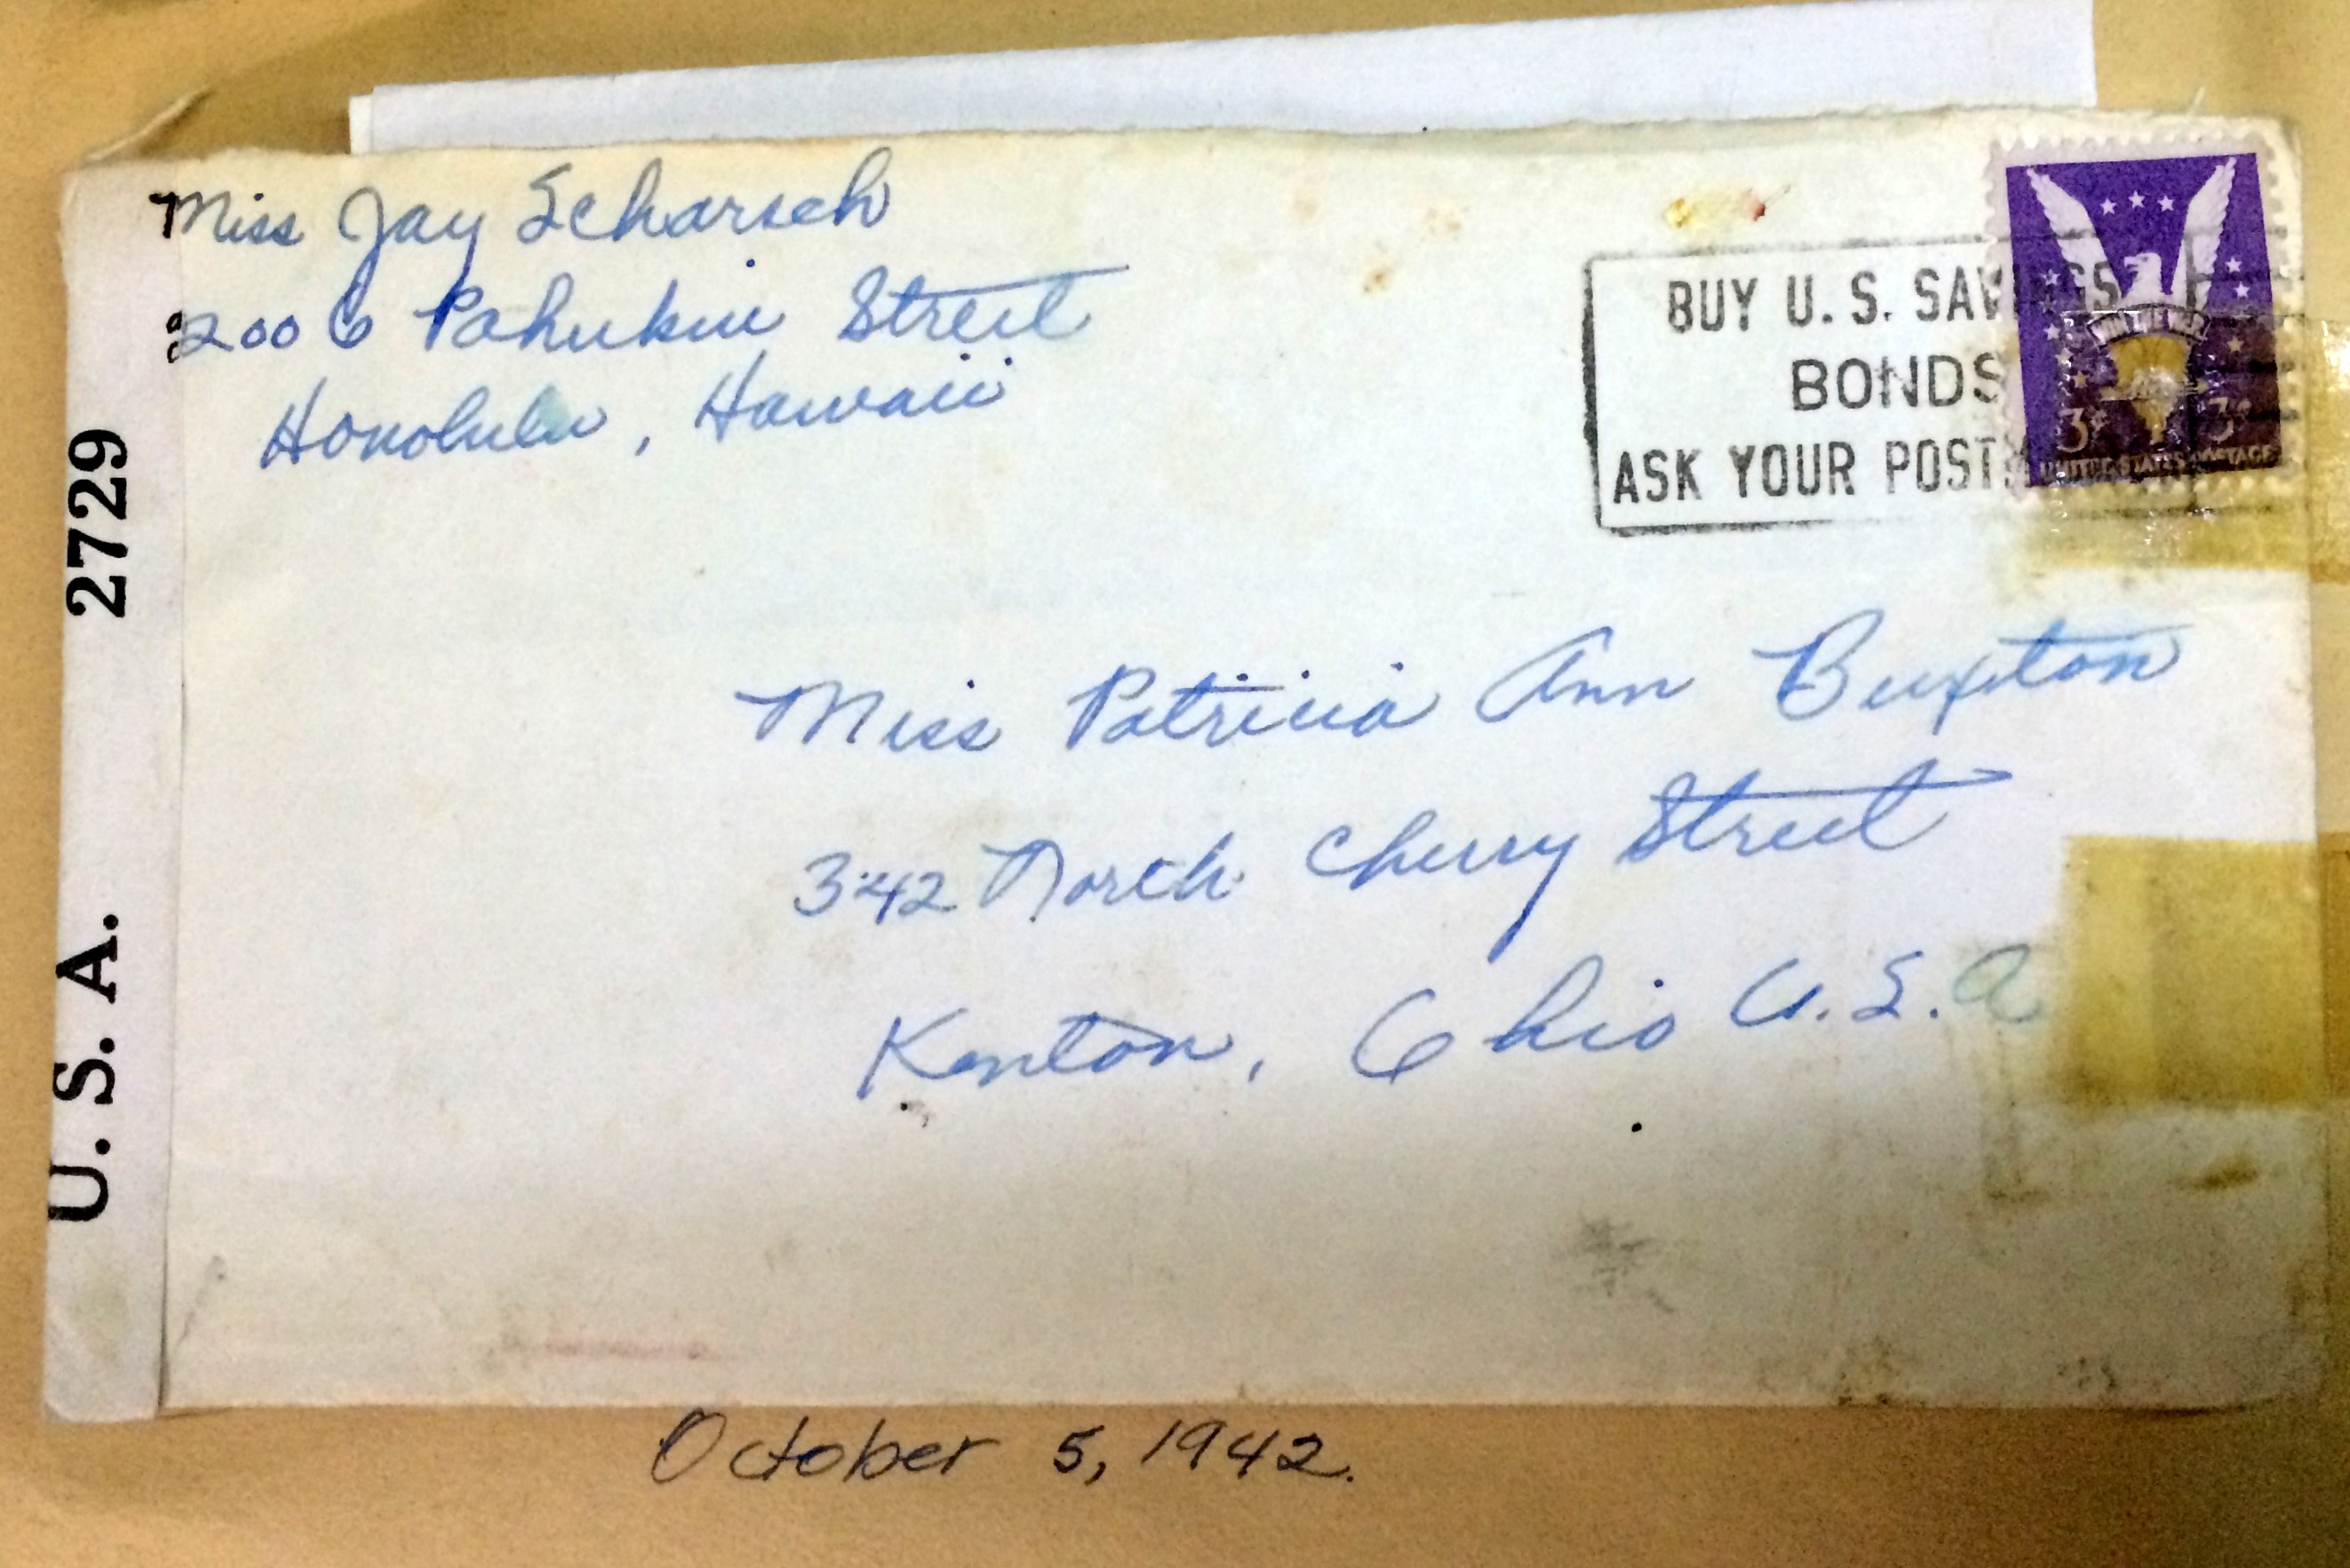 Miss Jay Scharsch
2006 Pahukui Street
Honolulu, Hawaii
BUY U. S. SAVINGS
BONDS
ASK YOUR POST
WIN THE WAR
3¢ 3¢
UNITED STATES POSTAGE
U. S. A. 2729
Miss Patricia Ann Buxton
342 North Cherry Street
Kenton, Ohio U.S.A
October 5, 1942.